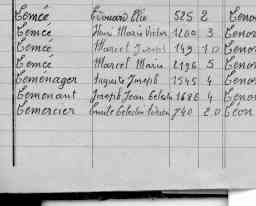 Lemée Edouard Elie 525 2 Leno
Lemée Henri Marie Victor 1200 3 Leno
Lemée Marcel Joseph 149 10 Leno
Lemée Marcel Marie 2196 5 Leno
Lemenager Auguste Joseph 1545 4 Leno
Lemenant Joseph Jean Celestin 1686 4 Leno
Lemercier Emile Celestin 740 20 Leon